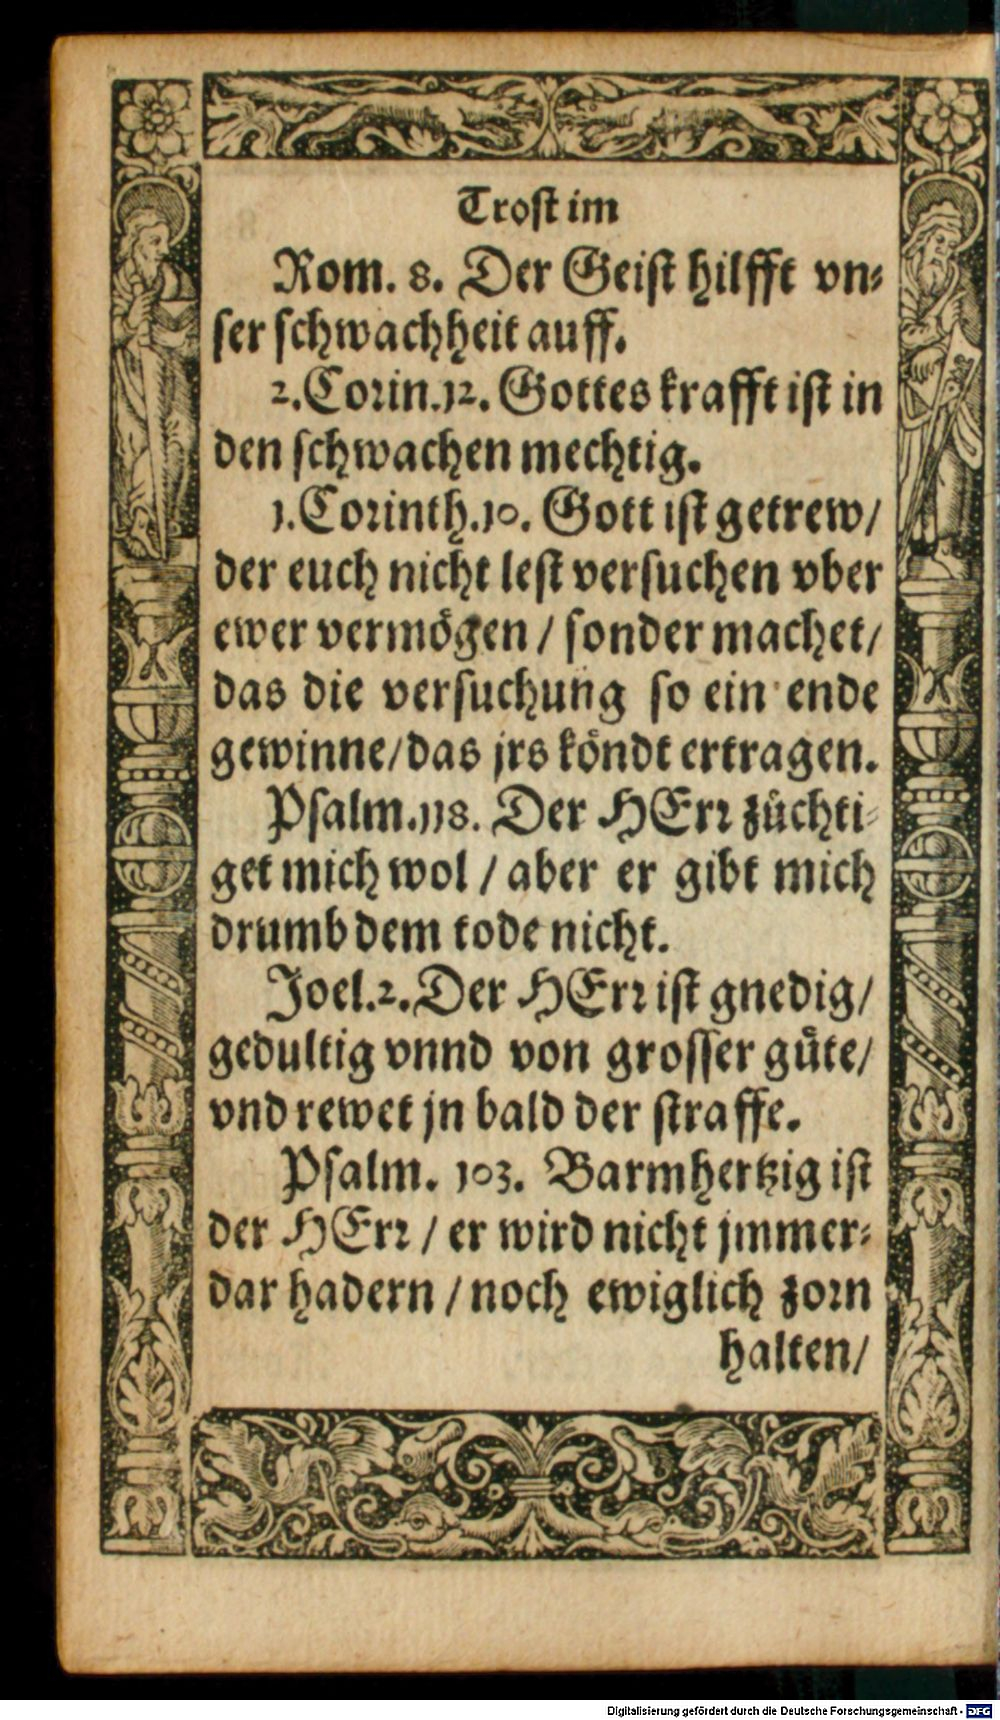 Trost im
Rom. 8. Der Geist hilfft vn⸗
ser schwachheit auff.
2. Corin. 12. Gottes krafft ist in
den schwachen mechtig.
1. Corinth. 10. Gott ist getrew/
der euch nicht lest versuchen vber
ewer vermögen / sonder machet/
das die versuchung so ein ende
gewinne/ das jrs köndt ertragen.
Psalm. 118. Der HErr züchti⸗
get mich wol / aber er gibt mich
drumb dem tode nicht.
Joel. 2. Der HErr ist gnedig/
gedultig vnnd von grosser güte/
vnd rewet jn bald der straffe.
Psalm. 103. Barmhertzig ist
der HErr / er wird nicht jmmer⸗
dar hadern / noch ewiglich zorn
halten/
Digitalisierung gefördert durch die Deutsche Forschungsgemeinschaft - DFG